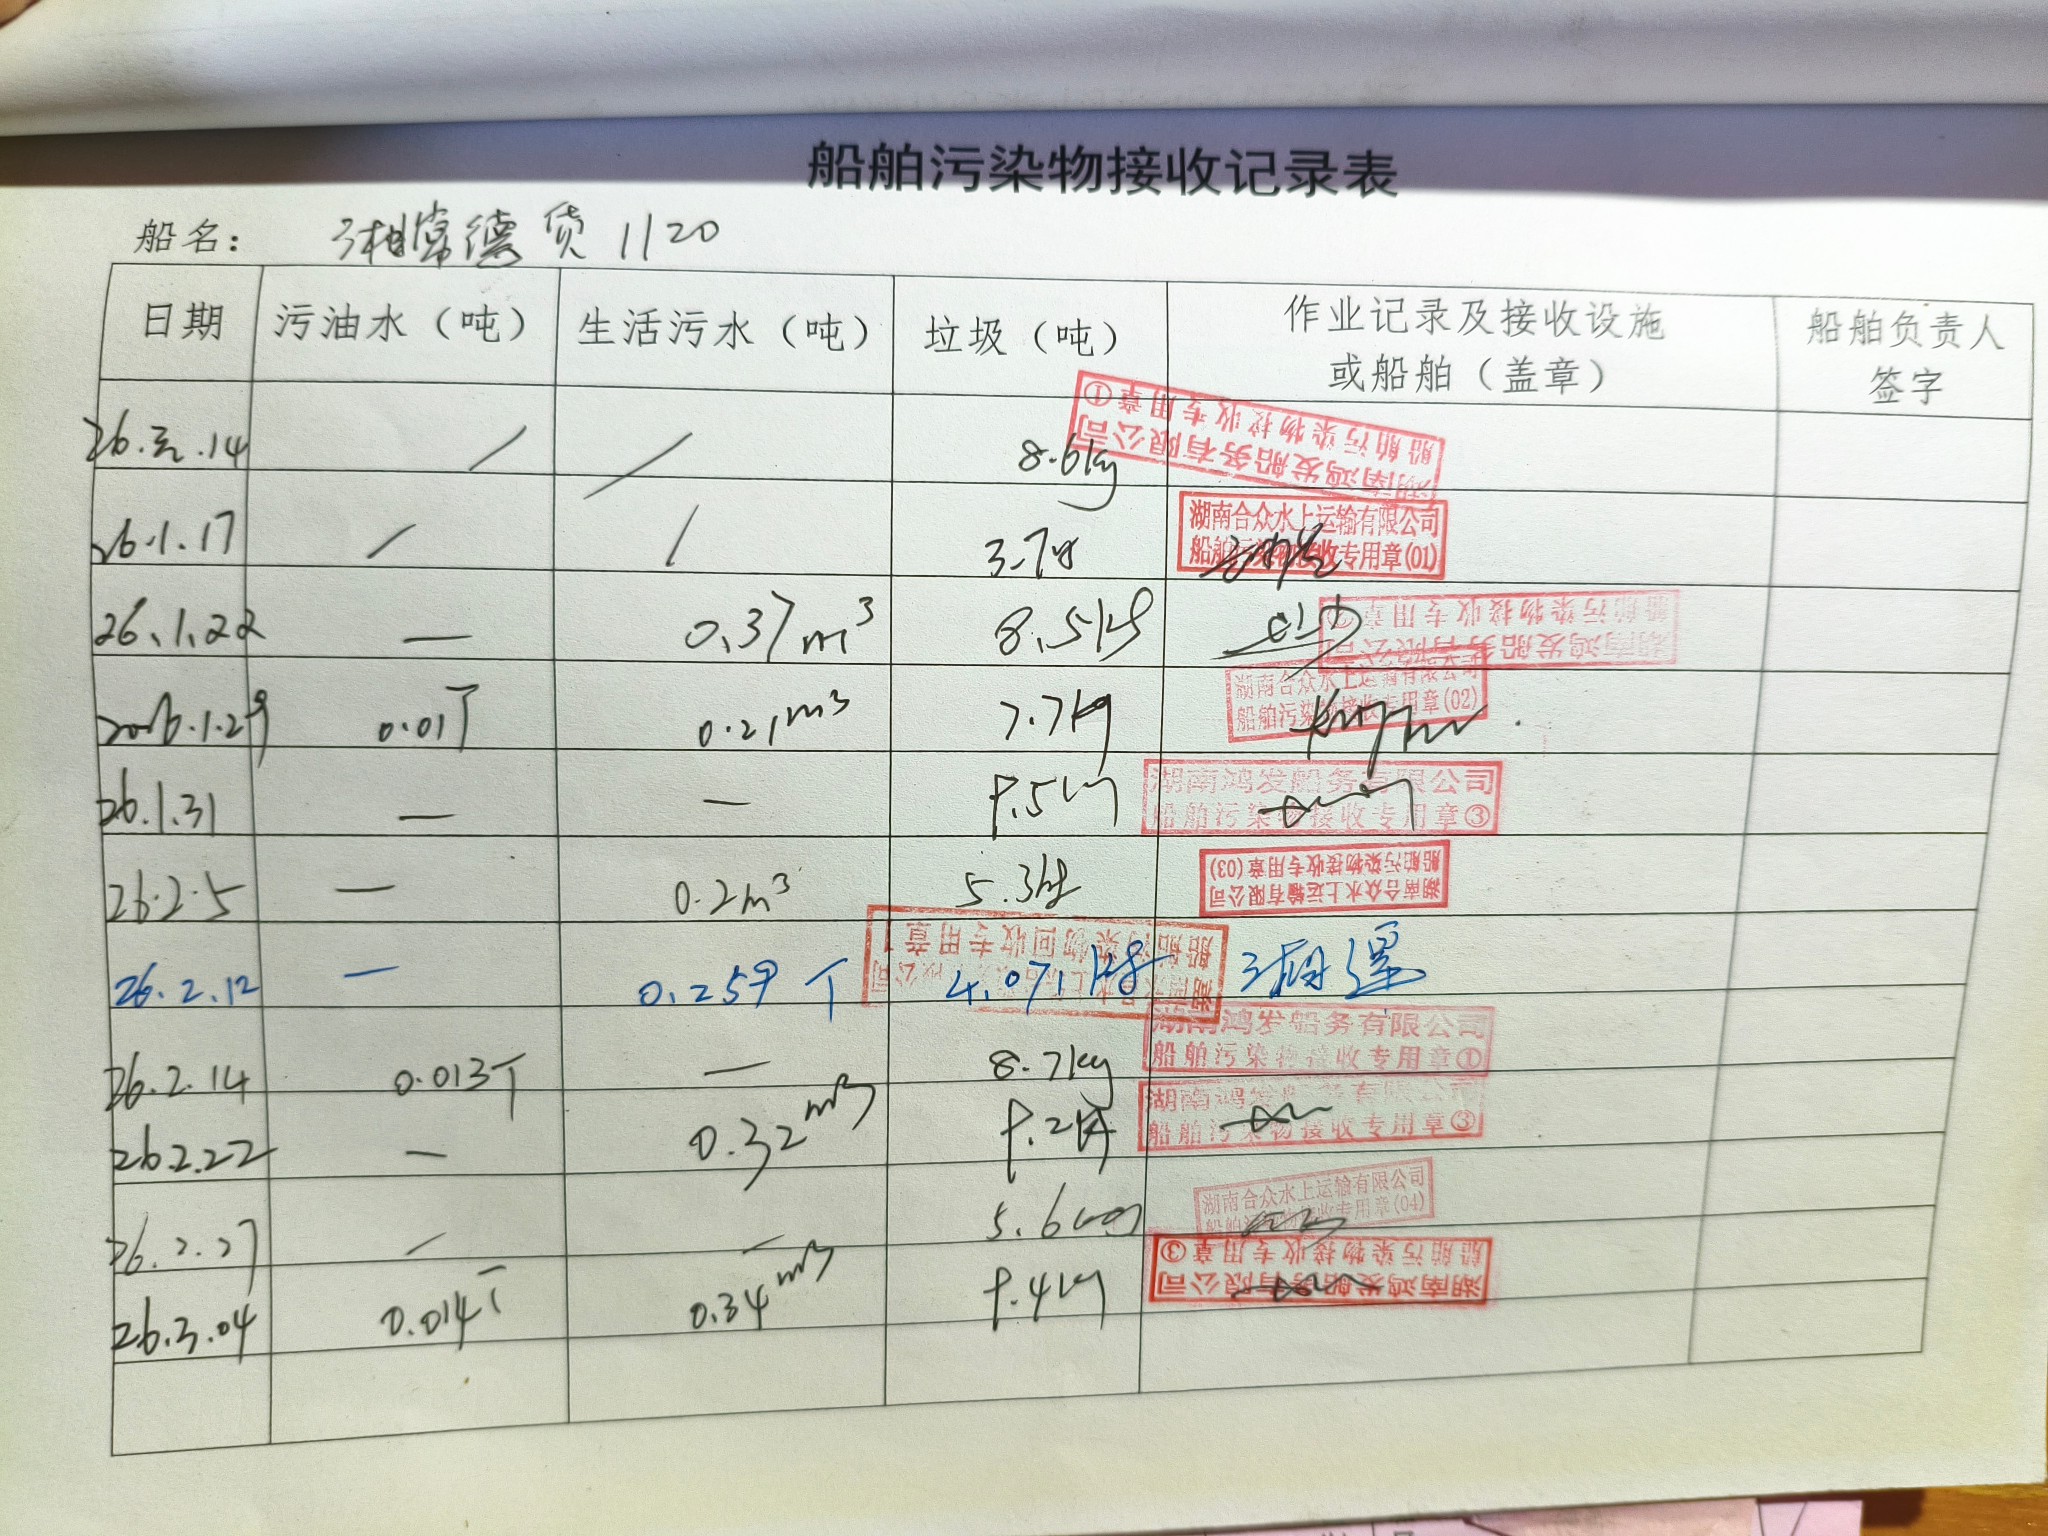 船舶污染物接收记录表
船名： 湘常德货1120
日期 污油水（吨） 生活污水（吨） 垃圾（吨） 作业记录及接收设施或船舶（盖章） 船舶负责人签字
26.元.14 / / 8.6kg 湖南鸿发船务有限公司 船舶污染物接收专用章①
26.1.17 / / 3.7kg 湖南合众水上运输有限公司 船舶污染物接收专用章(01)
26.1.22 — 0.37m³ 8.5kg 湖南鸿发船务有限公司 船舶污染物接收专用章
2026.1.29 0.01T 0.21m³ 7.7kg 湖南合众水上运输有限公司 船舶污染物接收专用章(02)
26.1.31 — — 9.5kg 湖南鸿发船务有限公司 船舶污染物接收专用章③
26.2.5 — 0.2m³ 5.3kg 湖南合众水上运输有限公司 船舶污染物接收专用章(03)
26.2.12 — 0.259T 4.071kg 船舶污染物回收专用章1
26.2.14 0.013T — 8.7kg 湖南鸿发船务有限公司 船舶污染物接收专用章①
26.2.22 — 0.32m³ 9.2kg 湖南鸿发船务有限公司 船舶污染物接收专用章③
26.2.27 / — 5.6kg 湖南合众水上运输有限公司 船舶污染物接收专用章(04)
26.3.04 0.014T 0.34m³ 9.4kg 湖南鸿发船务有限公司 船舶污染物接收专用章③